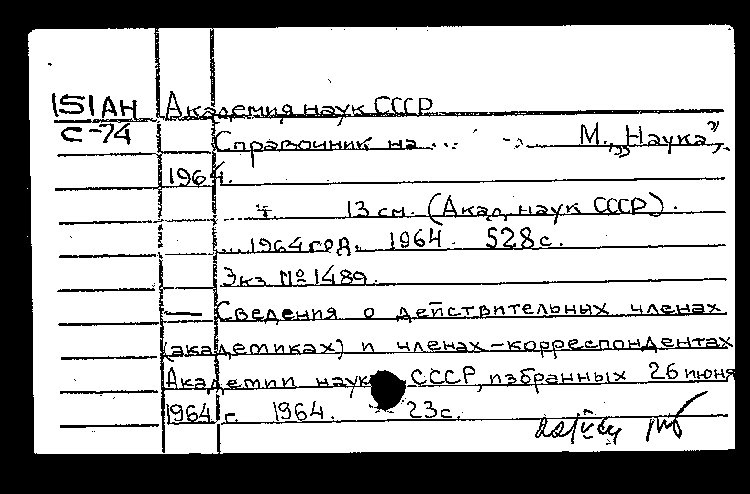 151АН Академия наук СССР
С-74 Справочник на ... М., „Наука”,
1964.
13 см. (Акад. наук СССР).
... 1964 год. 1964. 528 с.
Экз № 1489.
— Сведения о действительных членах
(академиках) и членах-корреспондентах
Академии наук СССР, избранных 26 июня
1964 г. 1964. 23 с.